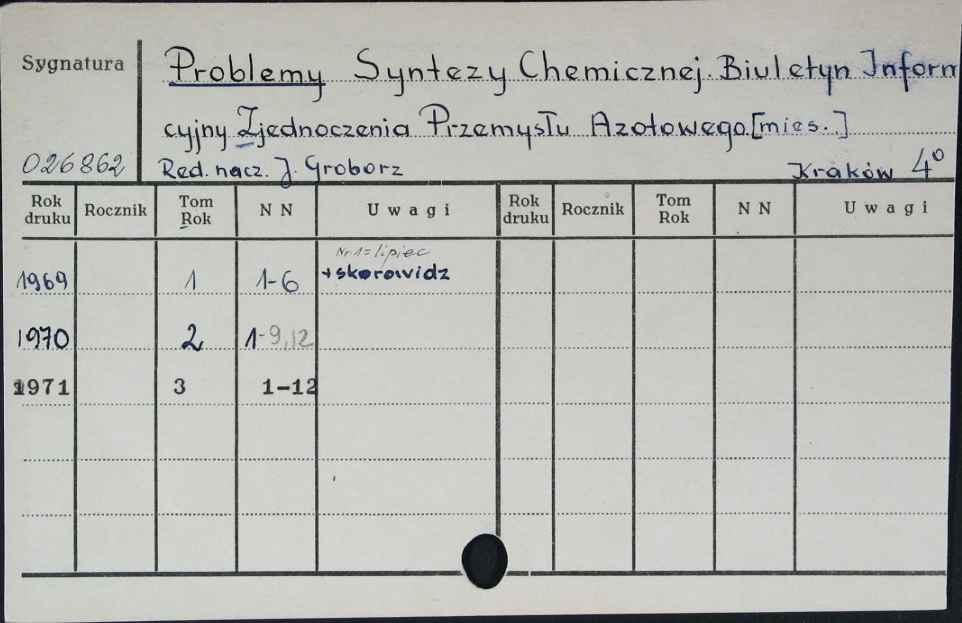 Sygnatura
Problemy Syntezy Chemicznej. Biuletyn Inform
cyjny Zjednoczenia Przemysłu Azotowego [mies.]
026862 Red. nacz. J. Groborz Kraków 4°
Rok druku Rocznik Tom Rok N N Uwagi Rok druku Rocznik Tom Rok N N Uwagi
Nr 1 = lipiec
1969 1 1-6 + skorowidz
1970 2 1-9, 12
1971 3 1-12